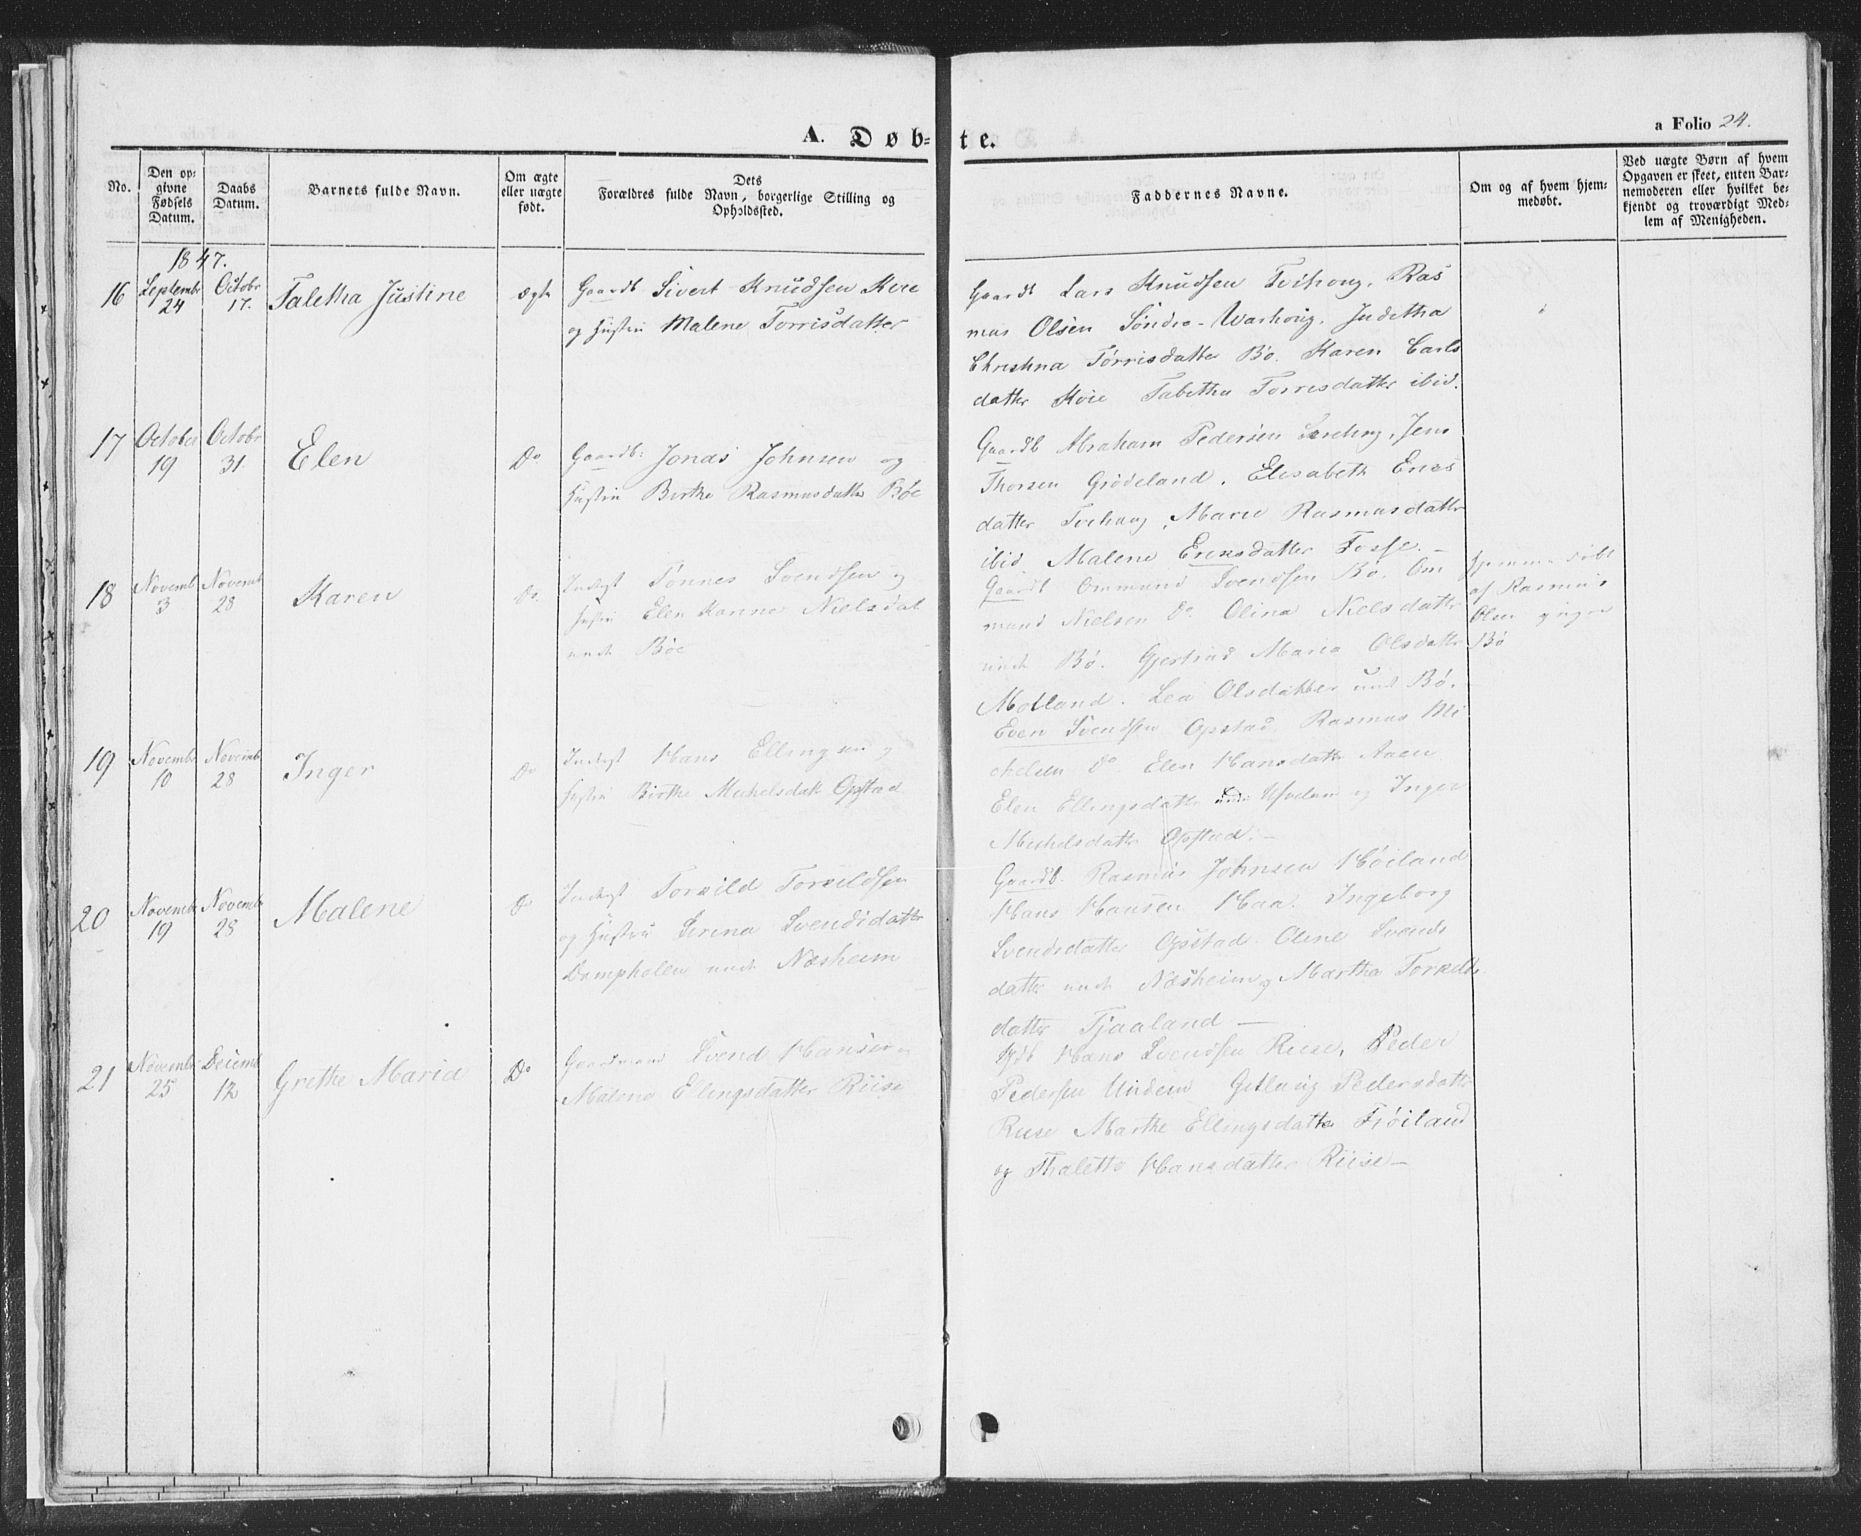 A. Døb= te.
a Folio 24.
No.
Den op-
givne
Fødsels
Datum.
Daabs
Datum.
Barnets fulde Navn.
Om ægte
eller uægte
født.
Dets
Forældres fulde Navn, borgerlige Stilling og
Opholdssted.
Faddernes Navne.
Om og af hvem hjem-
medøbt.
Ved uægte Børn af hvem
Opgaven er skeet, enten Bar-
nemoderen eller hvilket be-
kjendt og troværdigt Med-
lem af Menigheden.
1847.
16
Septembr
24
Octobr
17.
Taletha Justine
ægte
Gaardb Sivert Knudsen Kvie
og Hustru Malene Torrisdatter
Gaardb Lars Knudsen Tvihoug, Ras
mus Olsen Søndre-Warhoug, Judetha
Christina Tørrisdatter Bø. Karen Carls
datter Kvie Tabitha Torrisdatter ibid.
17
October
19
Octobr
31.
Elen
Do
Gaardb: Jonas Johnsen og
Hustru Birthe Rasmusdatter Bøe
Gaardb Abraham Pedersen, Jens
Thorsen Grødeland, Elisabeth Enes
datter Tvihoug, Marie Rasmusdatter
ibid. Malene Eriksdatter Fosse. –
18
Novembr
3
Novemb
28
Karen
Do
Inderst Tønnes Svendsen og
Hustru Elen Hanne Nielsdat
unde Bøe
Gaardb Ommund Svendsen Bø. Om
mund Nielsen Do Olina Nielsdatter
unde Bø. Gjertrud Maria Olsdatter
Motland. Lea Olsdatter und Bø.
Hjemme døbt
af Rasmus
Olsen yngre
Bø
19
Novembr
10
Novemb
28
Inger
Do
Inderst Hans Ellingsen og
Hustru Birthe Mikkelsdatt Opstad
Even Svendsen Opstad Rasmus Mi
chelsen Do Elen Hansdatter Aaen
Elen Ellingsdatter og Inger
Michelsdatter Opstad. –
20
Novemb
19
Novemb
28
Malene
Do
Inderst Torkild Torkildsen
og Hustru Serina Svendsdatter
Dampholen unde Næsheim
Gaardb. Rasmus Johnsen Høiland
Hans Hansen Haa. Ingeborg
Svendsdatter Opstad Oline Svends
datter unde Næsheim og Martha Torkelds
datter Tjaaland –
21
Novembr
25
Decemb
12
Grethe Maria
Do
Gaardmand Svend Hansen og
Malene Ellingsdatter Riise
Hans Svendsen Riise, Peder
Pedersen Undem Gitlaug Pedersdatter
Riise Marthe Ellingsdatter Frøiland
og Thalette Hansdatter Riise –